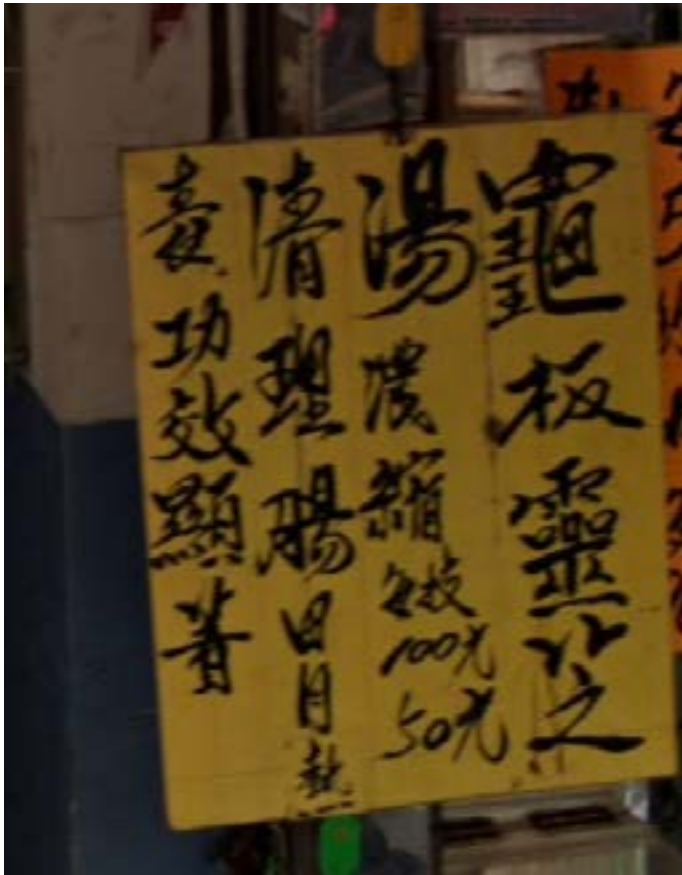 龜板靈芝
湯濃縮每 100元 50元
清理腸胃熱
毒功效顯著